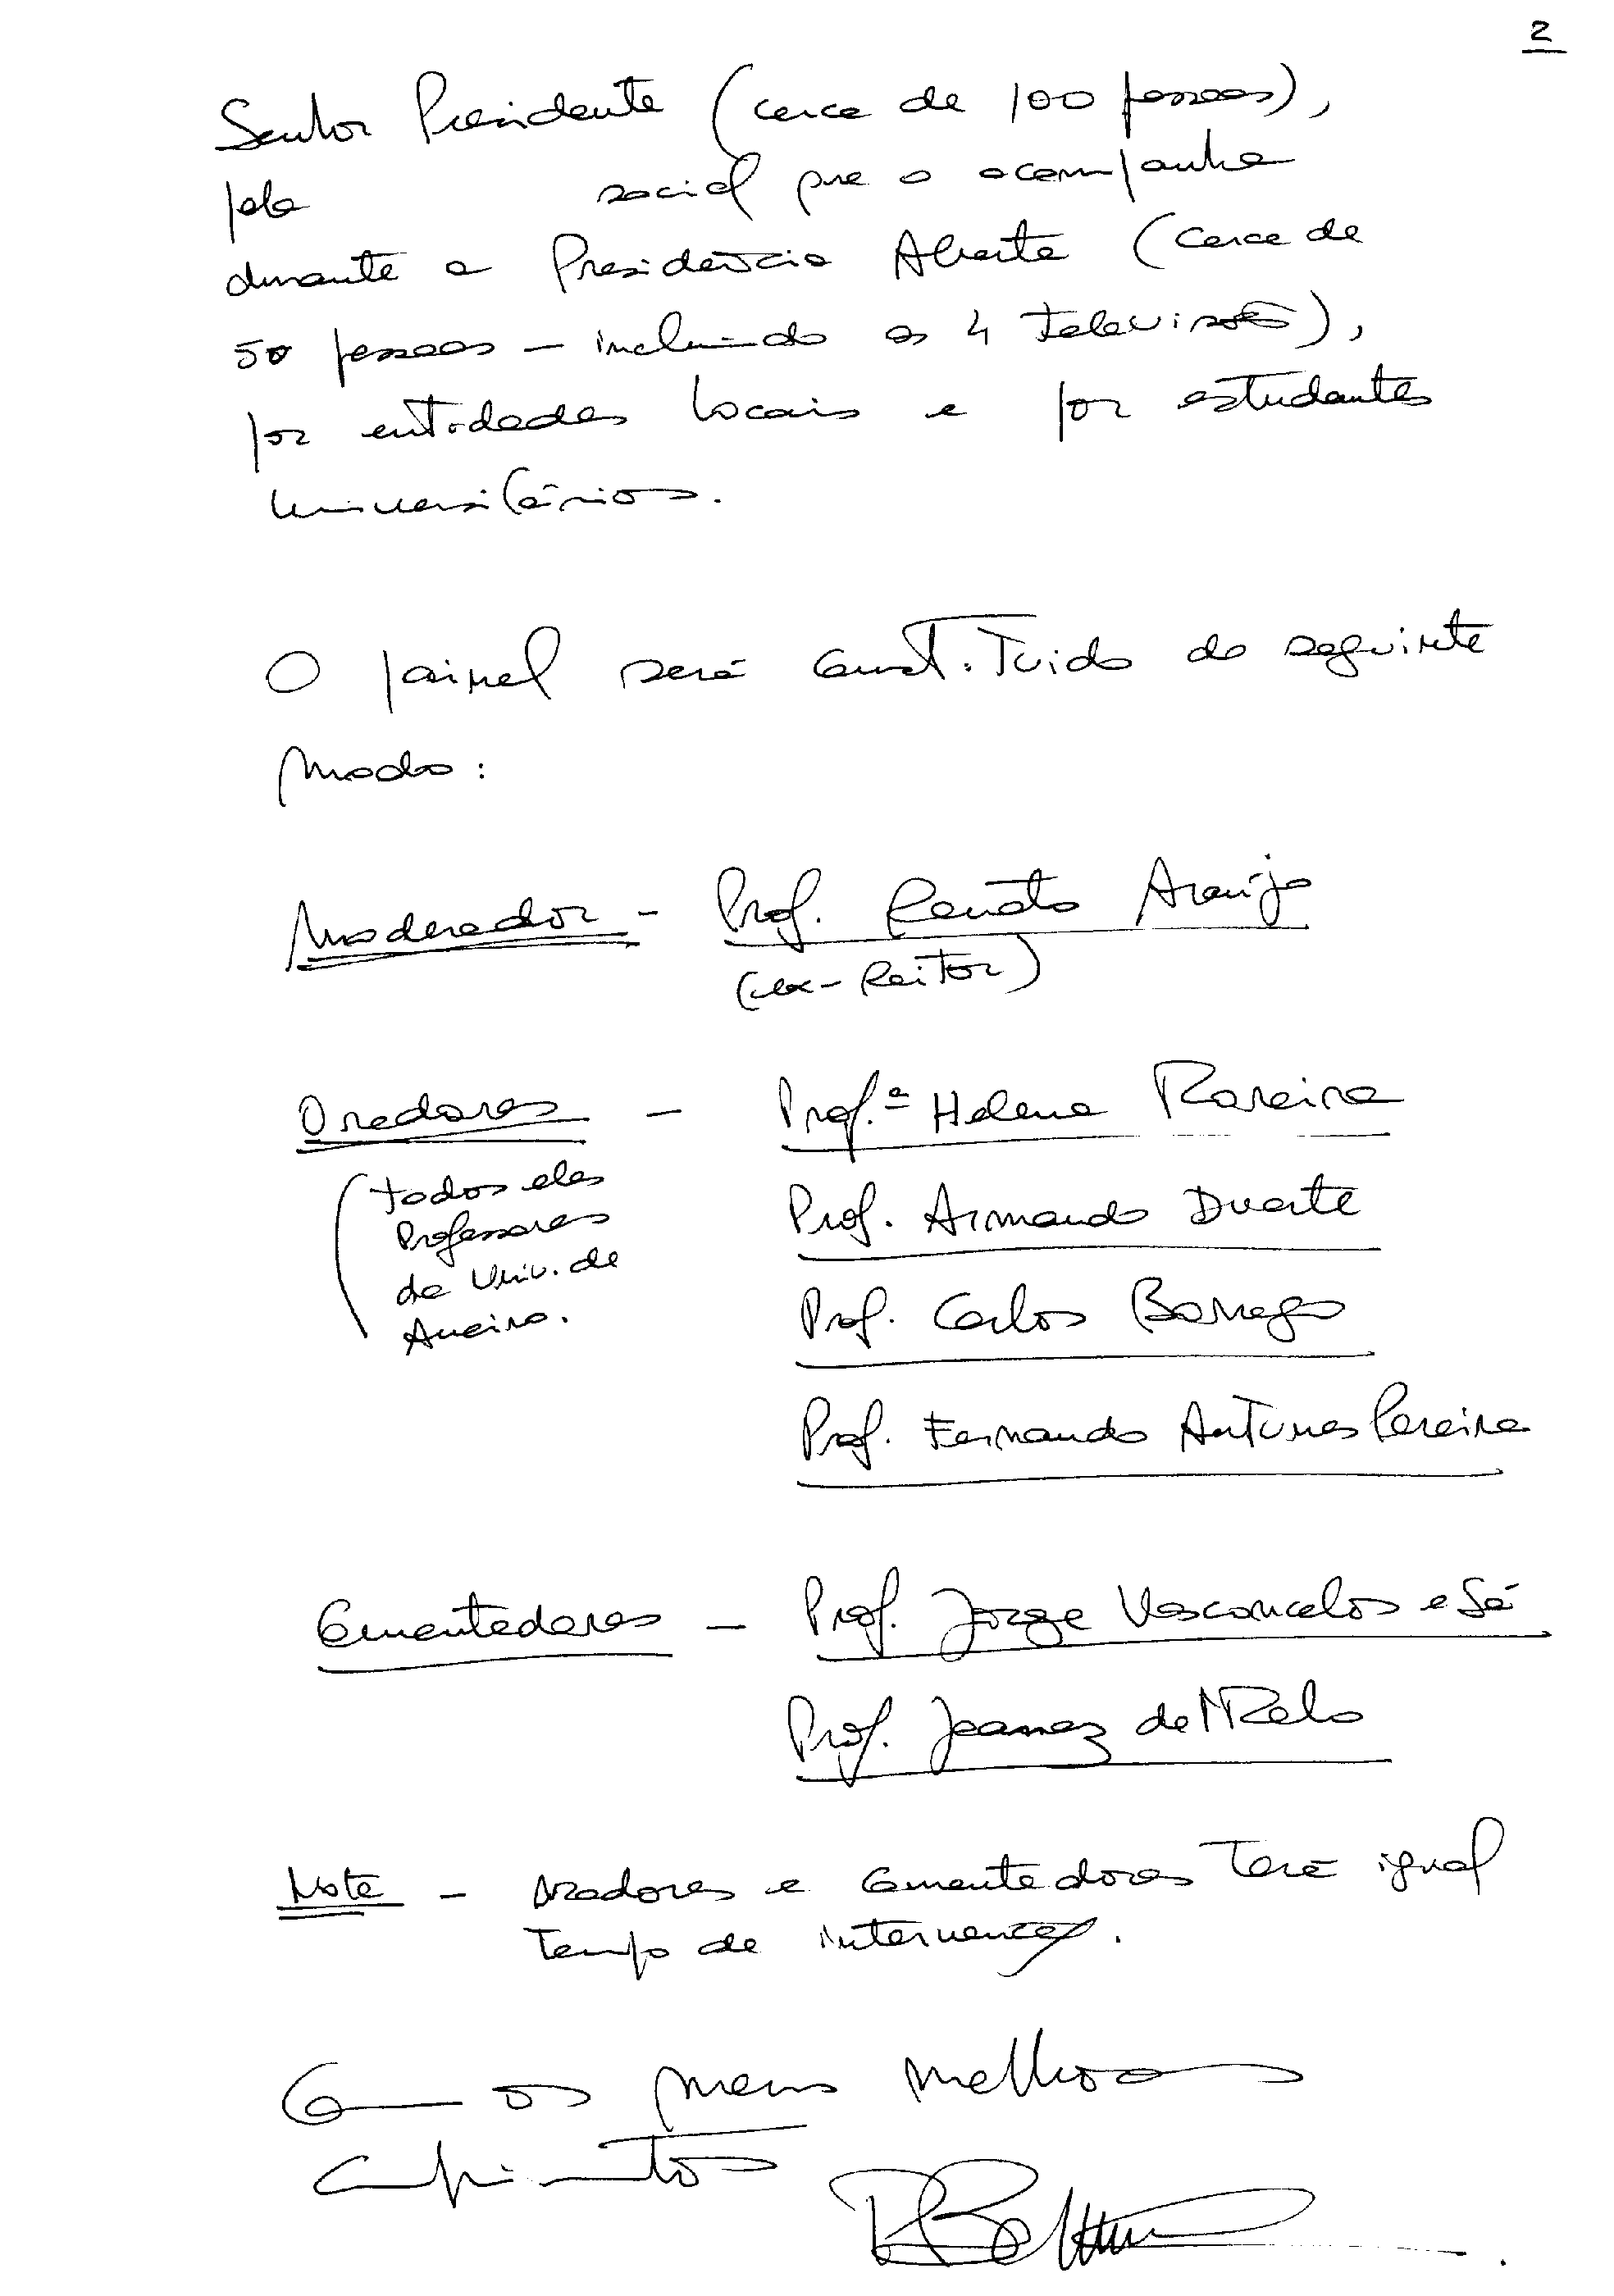 2
Senhor Presidente (cerca de 100 pessoas),
pela social que o acompanha
durante a Presidência Aberta (cerca de
50 pessoas — incluindo as 4 televisões),
por entidades locais e por estudantes
universitários.
O painel será constituido do seguinte
modo:
Moderador - Prof. Renato Araújo
(ex-Reitor)
Oradores - Prof.ª Helena
(todos eles
Professores
da Univ. de
Aveiro.
Prof. Armando Duarte
Prof. Carlos Borrego
Prof. Fernando Antunes Pereira
Comentadores - Prof. Jorge Vasconcelos e Sá
Prof. Joanaz de Melo
Nota - Oradores e Comentadores terão igual
tempo de intervenção.
Com os meus melhores
cumprimentos